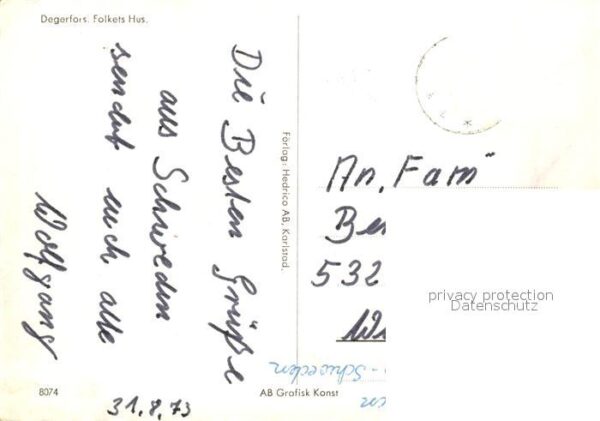 Degerfors. Folkets Hus.
Die Besten Grüße
aus Schweden
sendet euch alle
Wolfgang
Förlag: Hedrico AB, Karlstad.
An, Fam
532
privacy protection
Datenschutz
- Schweden
8074
AB Grafisk Konst
31.8.73